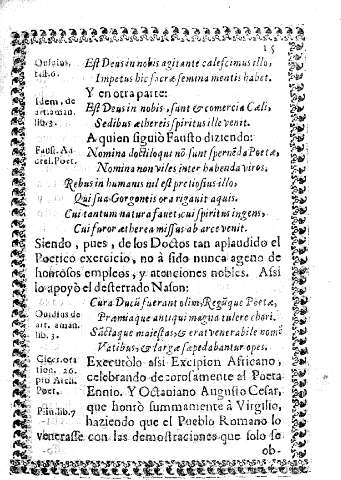 15
Ovidius, lib. 6.
Est Deus in nobis agitante calescimus illo,
Impetus hic sacræ semina mentis habet.
Y en otra parte:
Idem, de art. aman. lib. 3.
Est Deus in nobis, sunt & comercia Cæli,
Sedibus æthereis spiritus ille venit.
A quien siguiò Fausto diziendo:
Faust. An-
crel. Poet.
Nomina doctiloqui nõ sunt spernẽda Poetæ,
Nomina non viles inter habenda viros.
Rebus in humanis nil est pretiosius illo,
Qui sua Gorgoneis ora rigavit aquis.
Cui tantum natura favet, cui spiritus ingens,
Cui furor ætherea missus ab arce venit.
Siendo, pues, de los Doctos tan aplaudido el
Poetico exercicio, no à sido nunca ageno de
honrosos empleos, y atenciones nobles. Assi
lo apoyò el desterrado Nason:
Cura Ducũ fuerant olim, Regũque Poetæ,
Ovidius de art. aman. lib. 3.
Præmiaque antiqui magna tulere chori.
Sãctaque maiestas, & erat venerabile nomẽ
Vatibus, & largæ sæpe dabantur opes.
Cicer. ora
tion. 26.
pro Arch.
Poet.
Executòlo assi Excipion Africano,
celebrando decorosamente al Poeta
Ennio. Y Octaviano Augusto Cesar,
Plin. lib. 7
que honrò summamente à Virgilio,
haziendo que el Pueblo Romano lo
venerasse con las demostraciones que solo se
ob-